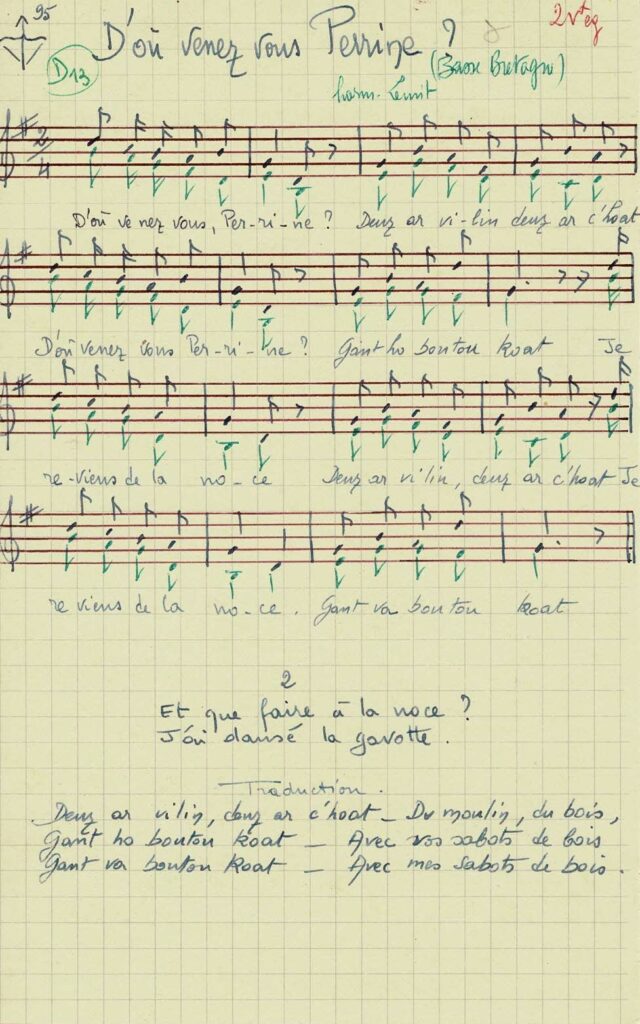 95
D'où venez vous Perrine ?
D13
(Basse Bretagne)
harm.
2
4
D'où ve nez vous, Per-ri-ne ? Deuz ar vi-lin deuz ar c'hoat
D'où venez vous Per-ri-ne ? Gant ho boutou koat Je
re-viens de la no-ce Deuz ar vi lin, deuz ar c'hoat Je
re viens de la no-ce. Gant va boutou koat
2
Et que faire à la noce ?
J'ai dansé la gavotte.
Traduction.
Deuz ar vilin, deuz ar c'hoat _ Du moulin, du bois,
Gant ho boutou koat _ Avec vos sabots de bois
Gant va boutou koat _ Avec mes sabots de bois.